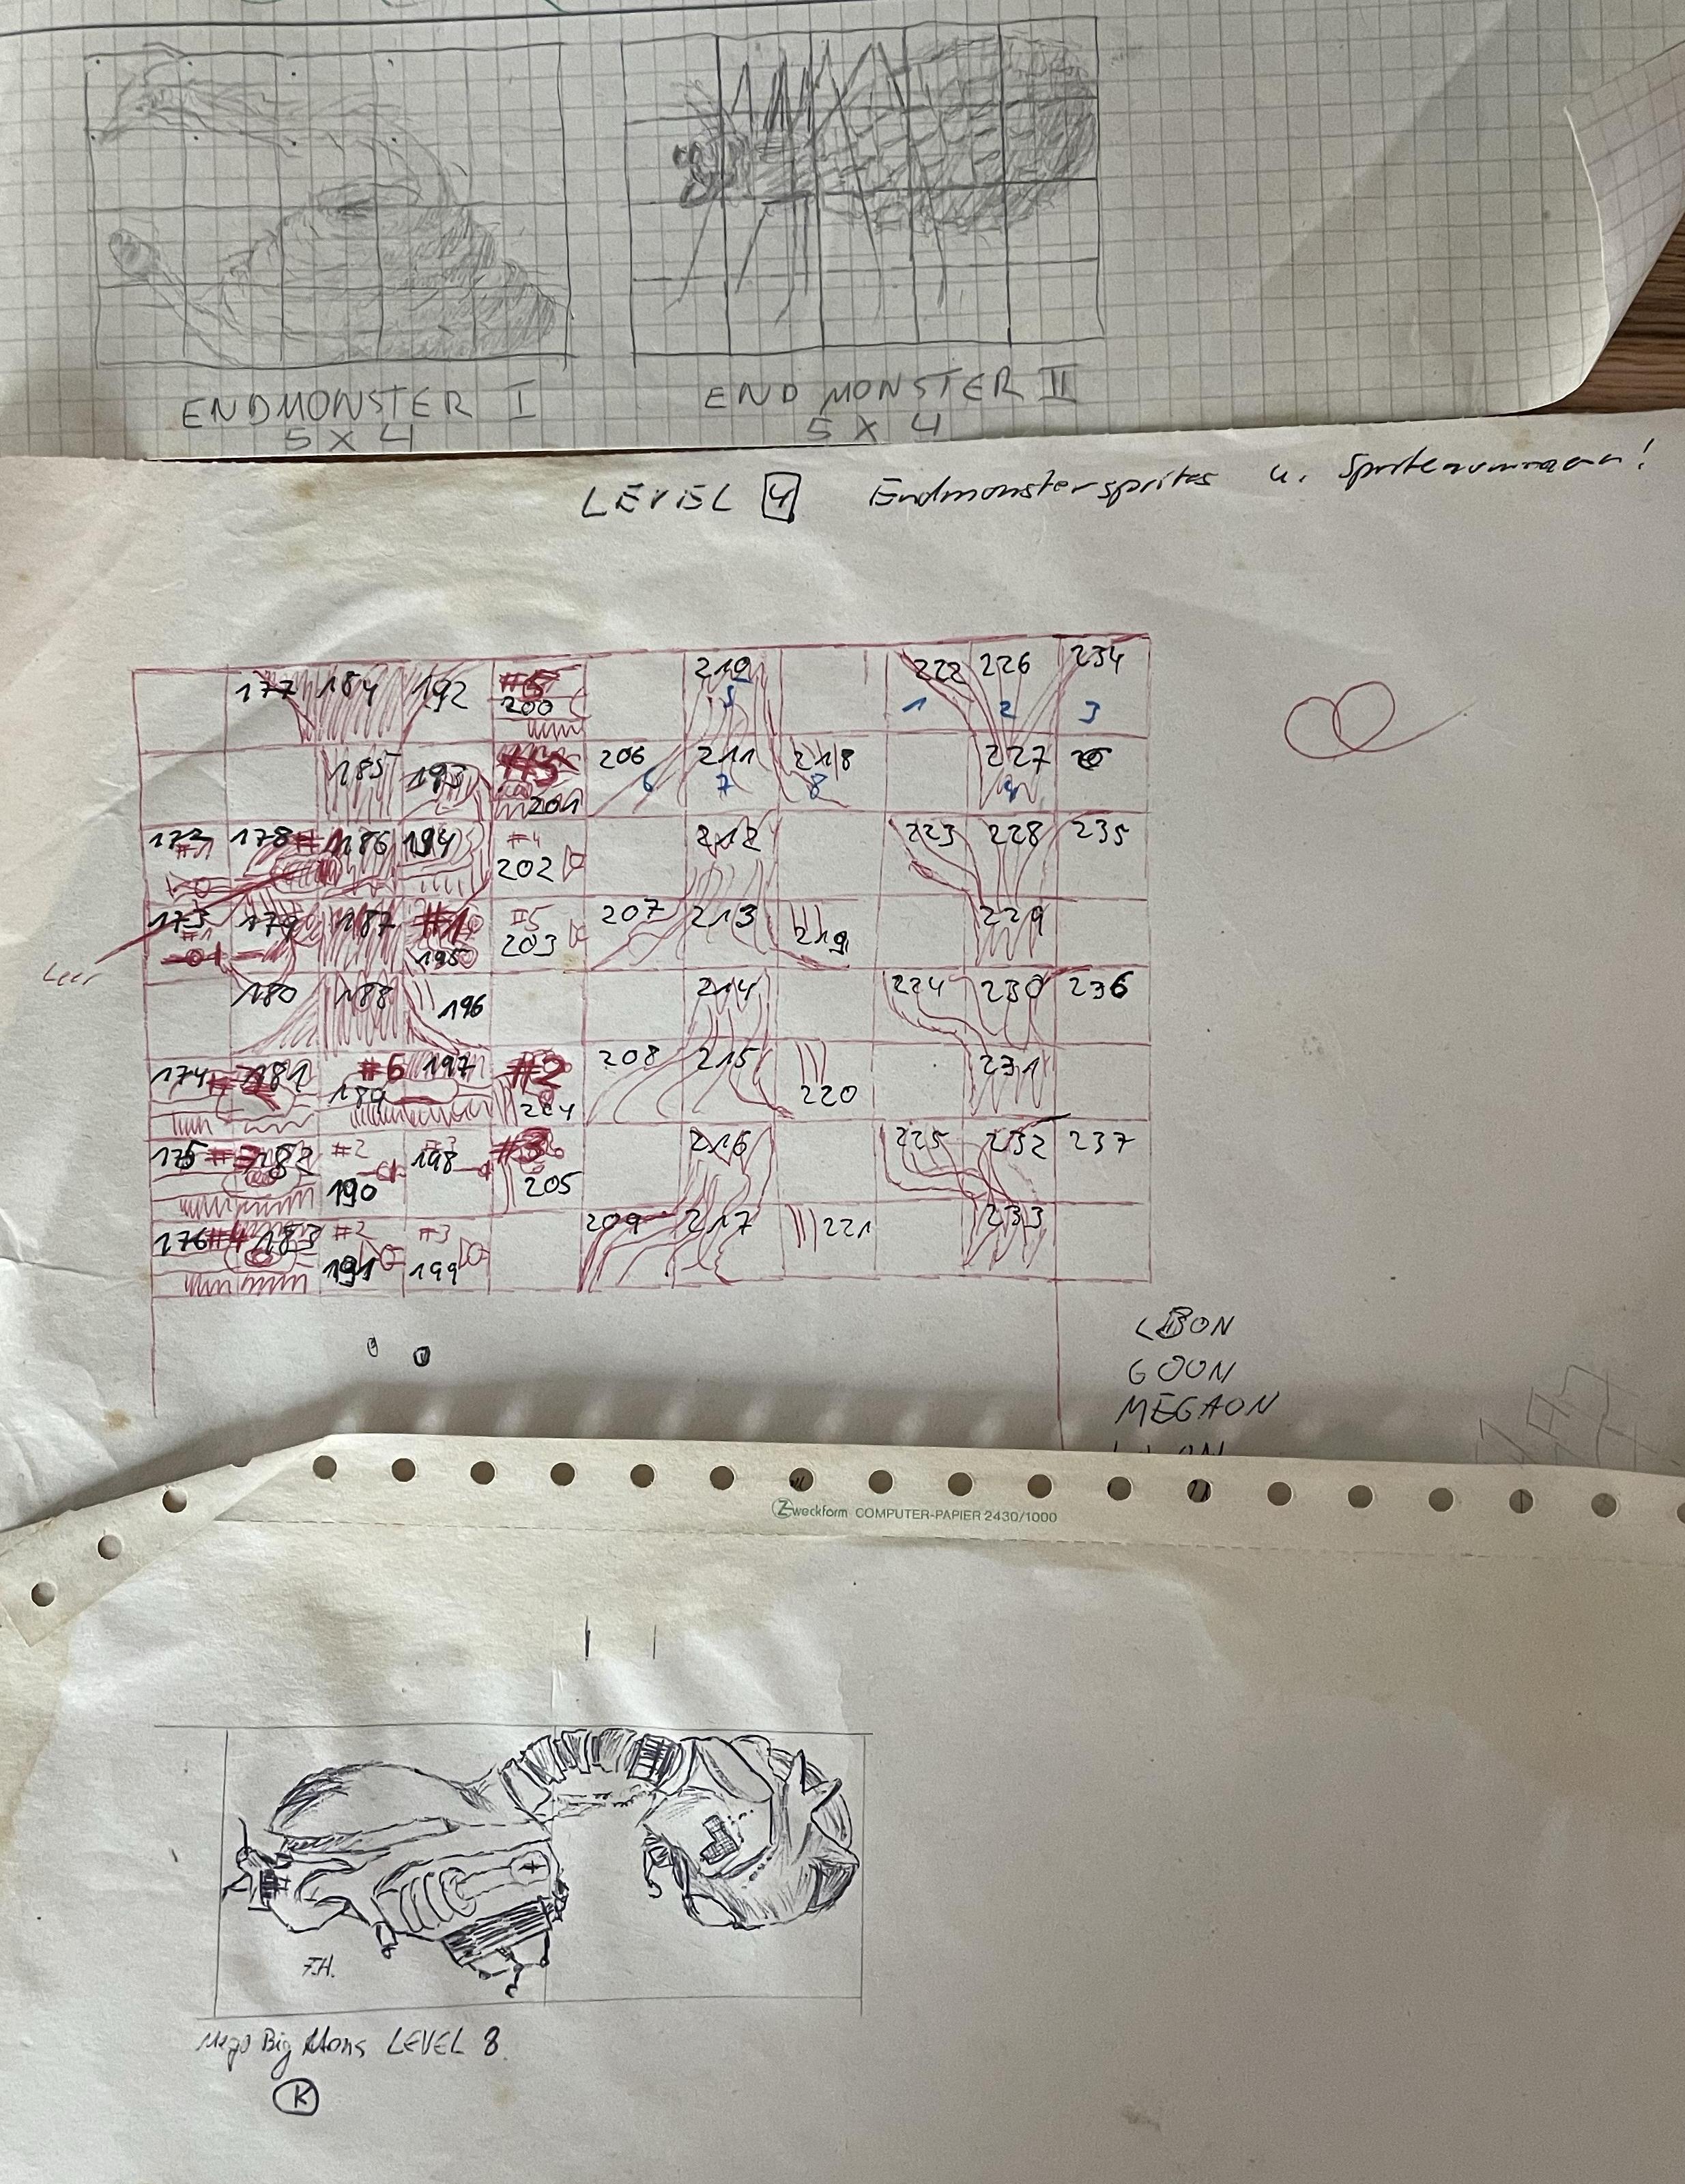 ENDMONSTER I
5 X 4
END MONSTER II
5 X 4
LEVEL 4 Endmonstersprites u.
177 184 192 #6
200
210 222 226 234
5 1 2 3
185 193 #5
201
206 211 218 227
6 7 8 9
178 186 194 #4
202
212 223 228 235
173 179 187 #1 #5
#1 195 203
207 213 219 229
Leer
180 188 196 214 224 230 236
174 #2 181 #6 197 #2
189 204
208 215 220 231
175 182 #2 #3 #3
190 198 205
216 225 232 237
176 #4 183 #2 #3
191 199
209 217 221 233
GOON
MEGAON
Zweckform COMPUTER-PAPIER 2430/1000
F.H.
Big Mons LEVEL 8.
K